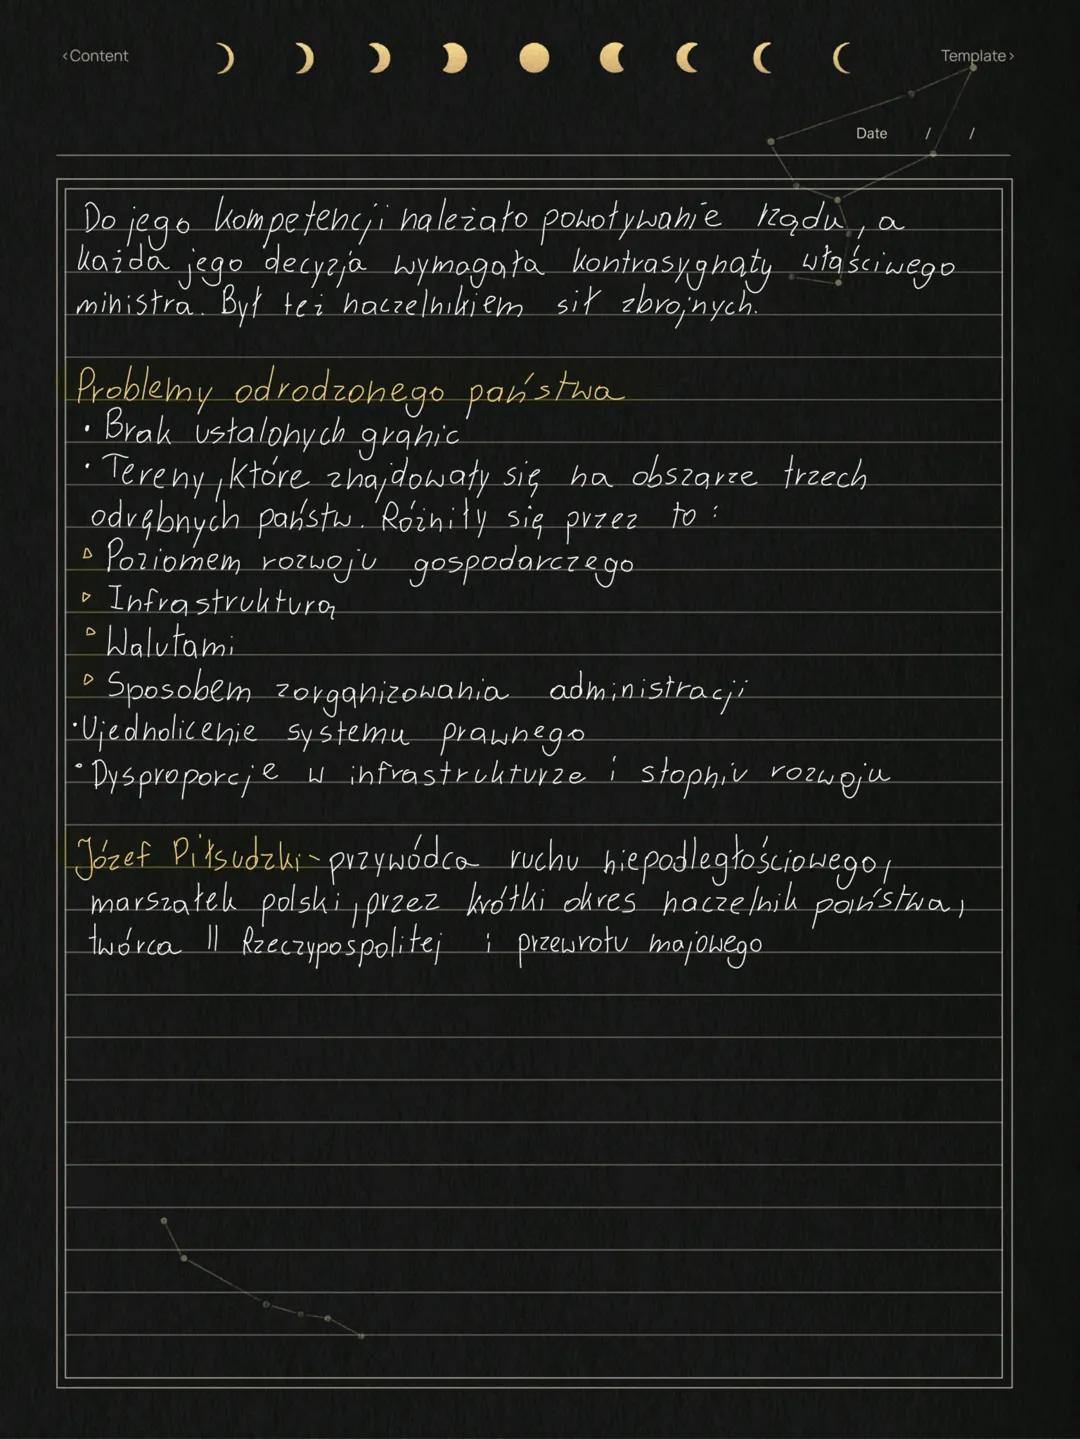 ‹Content
Template›
Date / /
Do jego kompetencji należało powoływanie rządu, a
każda jego decyzja wymagała kontrasygnaty właściwego
ministra. Był też naczelnikiem sił zbrojnych.
Problemy odrodzonego państwa
• Brak ustalonych granic
• Tereny, które znajdowały się na obszarze trzech
odrębnych państw. Różniły się przez to:
▹ Poziomem rozwoju gospodarczego
▹ Infrastrukturą
▹ Walutami
▹ Sposobem zorganizowania administracji
• Ujednolicenie systemu prawnego
• Dysproporcje w infrastrukturze i stopniu rozwoju
Józef Piłsudzki - przywódca ruchu niepodległościowego,
marszałek polski, przez krótki okres naczelnik państwa,
twórca II Rzeczypospolitej i przewrotu majowego